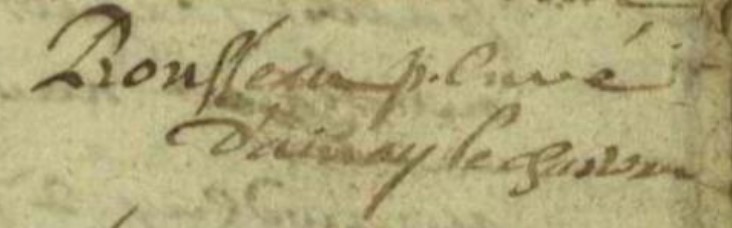 Rousseau p. Curé
D'ainay le